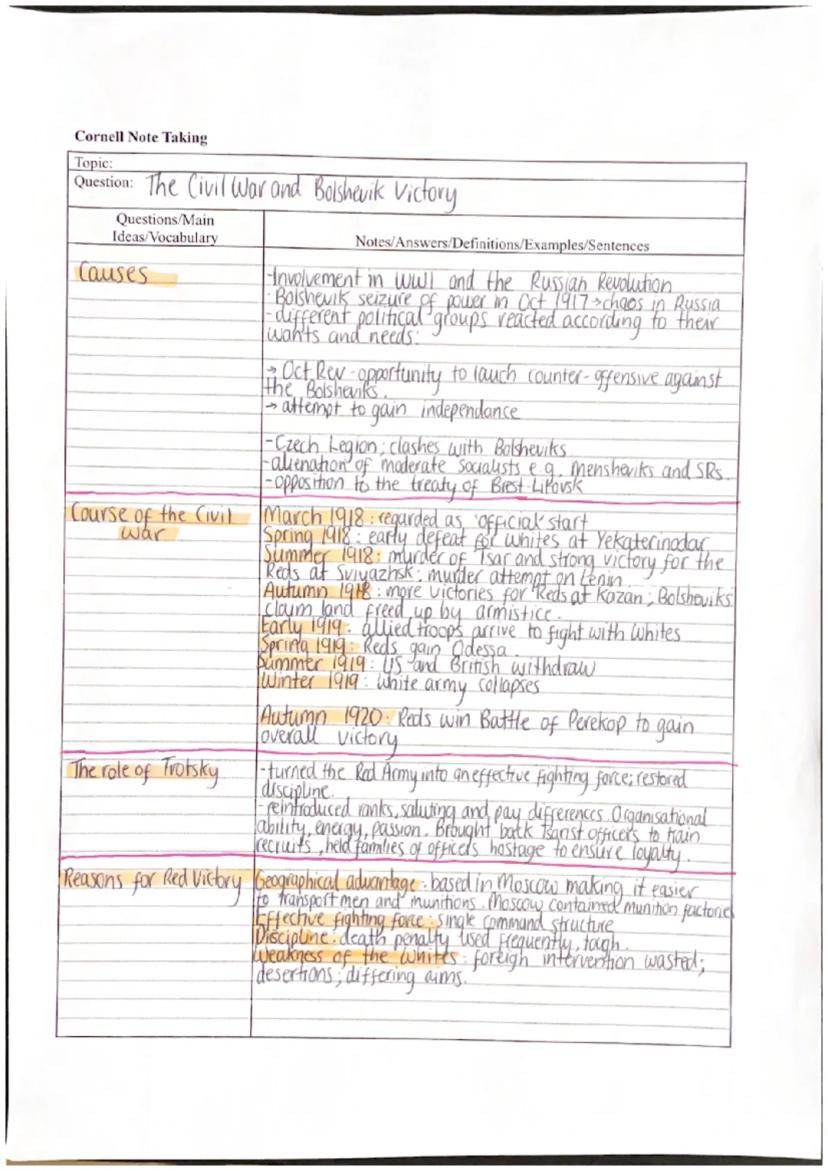 Cornell Note Taking
Topic:
Question: The Civil War and Bolshevik Victory
Questions/Main
Ideas/Vocabulary
Notes/Answers/Definitions/Examples/Sentences
Causes
-Involvement in WW1 and the Russian Revolution
-Bolshevik seizure of power in Oct 1917→chaos in Russia
-different political groups reacted according to their
wants and needs:
→ Oct Rev-opportunity to lauch counter-offensive against
the Bolsheviks.
→ attempt to gain independance
-Czech Legion; clashes with Bolsheviks
-alienation of moderate socialists e.g. Mensheviks and SRs.
-opposition to the treaty of Brest-Litovsk
Course of the Civil
War
March 1918: regarded as 'official' start
Spring 1918: early defeat for Whites at Yekaterinodar
Summer 1918: murder of Tsar and strong victory for the
Reds at Sviyazhsk; murder attempt on Lenin.
Autumn 1918: more victories for Reds at Kazan; Bolsheviks
claim land freed up by armistice.
Early 1919: allied troops arrive to fight with Whites
Spring 1919: Reds gain Odessa.
Summer 1919: US and British withdraw
Winter 1919: White army collapses
Autumn 1920: Reds win Battle of Perekop to gain
overall victory
The role of Trotsky
-turned the Red Army into an effective fighting force; restored
discipline.
-reintroduced ranks, saluting and pay differences. Organisational
ability, energy, passion. Brought back Tsarist officers to train
recruits, held families of officers hostage to ensure loyalty.
Reasons for Red Victory
Geographical advantage: based in Moscow making it easier
to transport men and munitions. Moscow contained munition factories
Effective fighting force: single command structure
Discipline: death penalty used frequently, tough.
Weakness of the Whites: foreign intervention wasted;
desertions; differing aims.